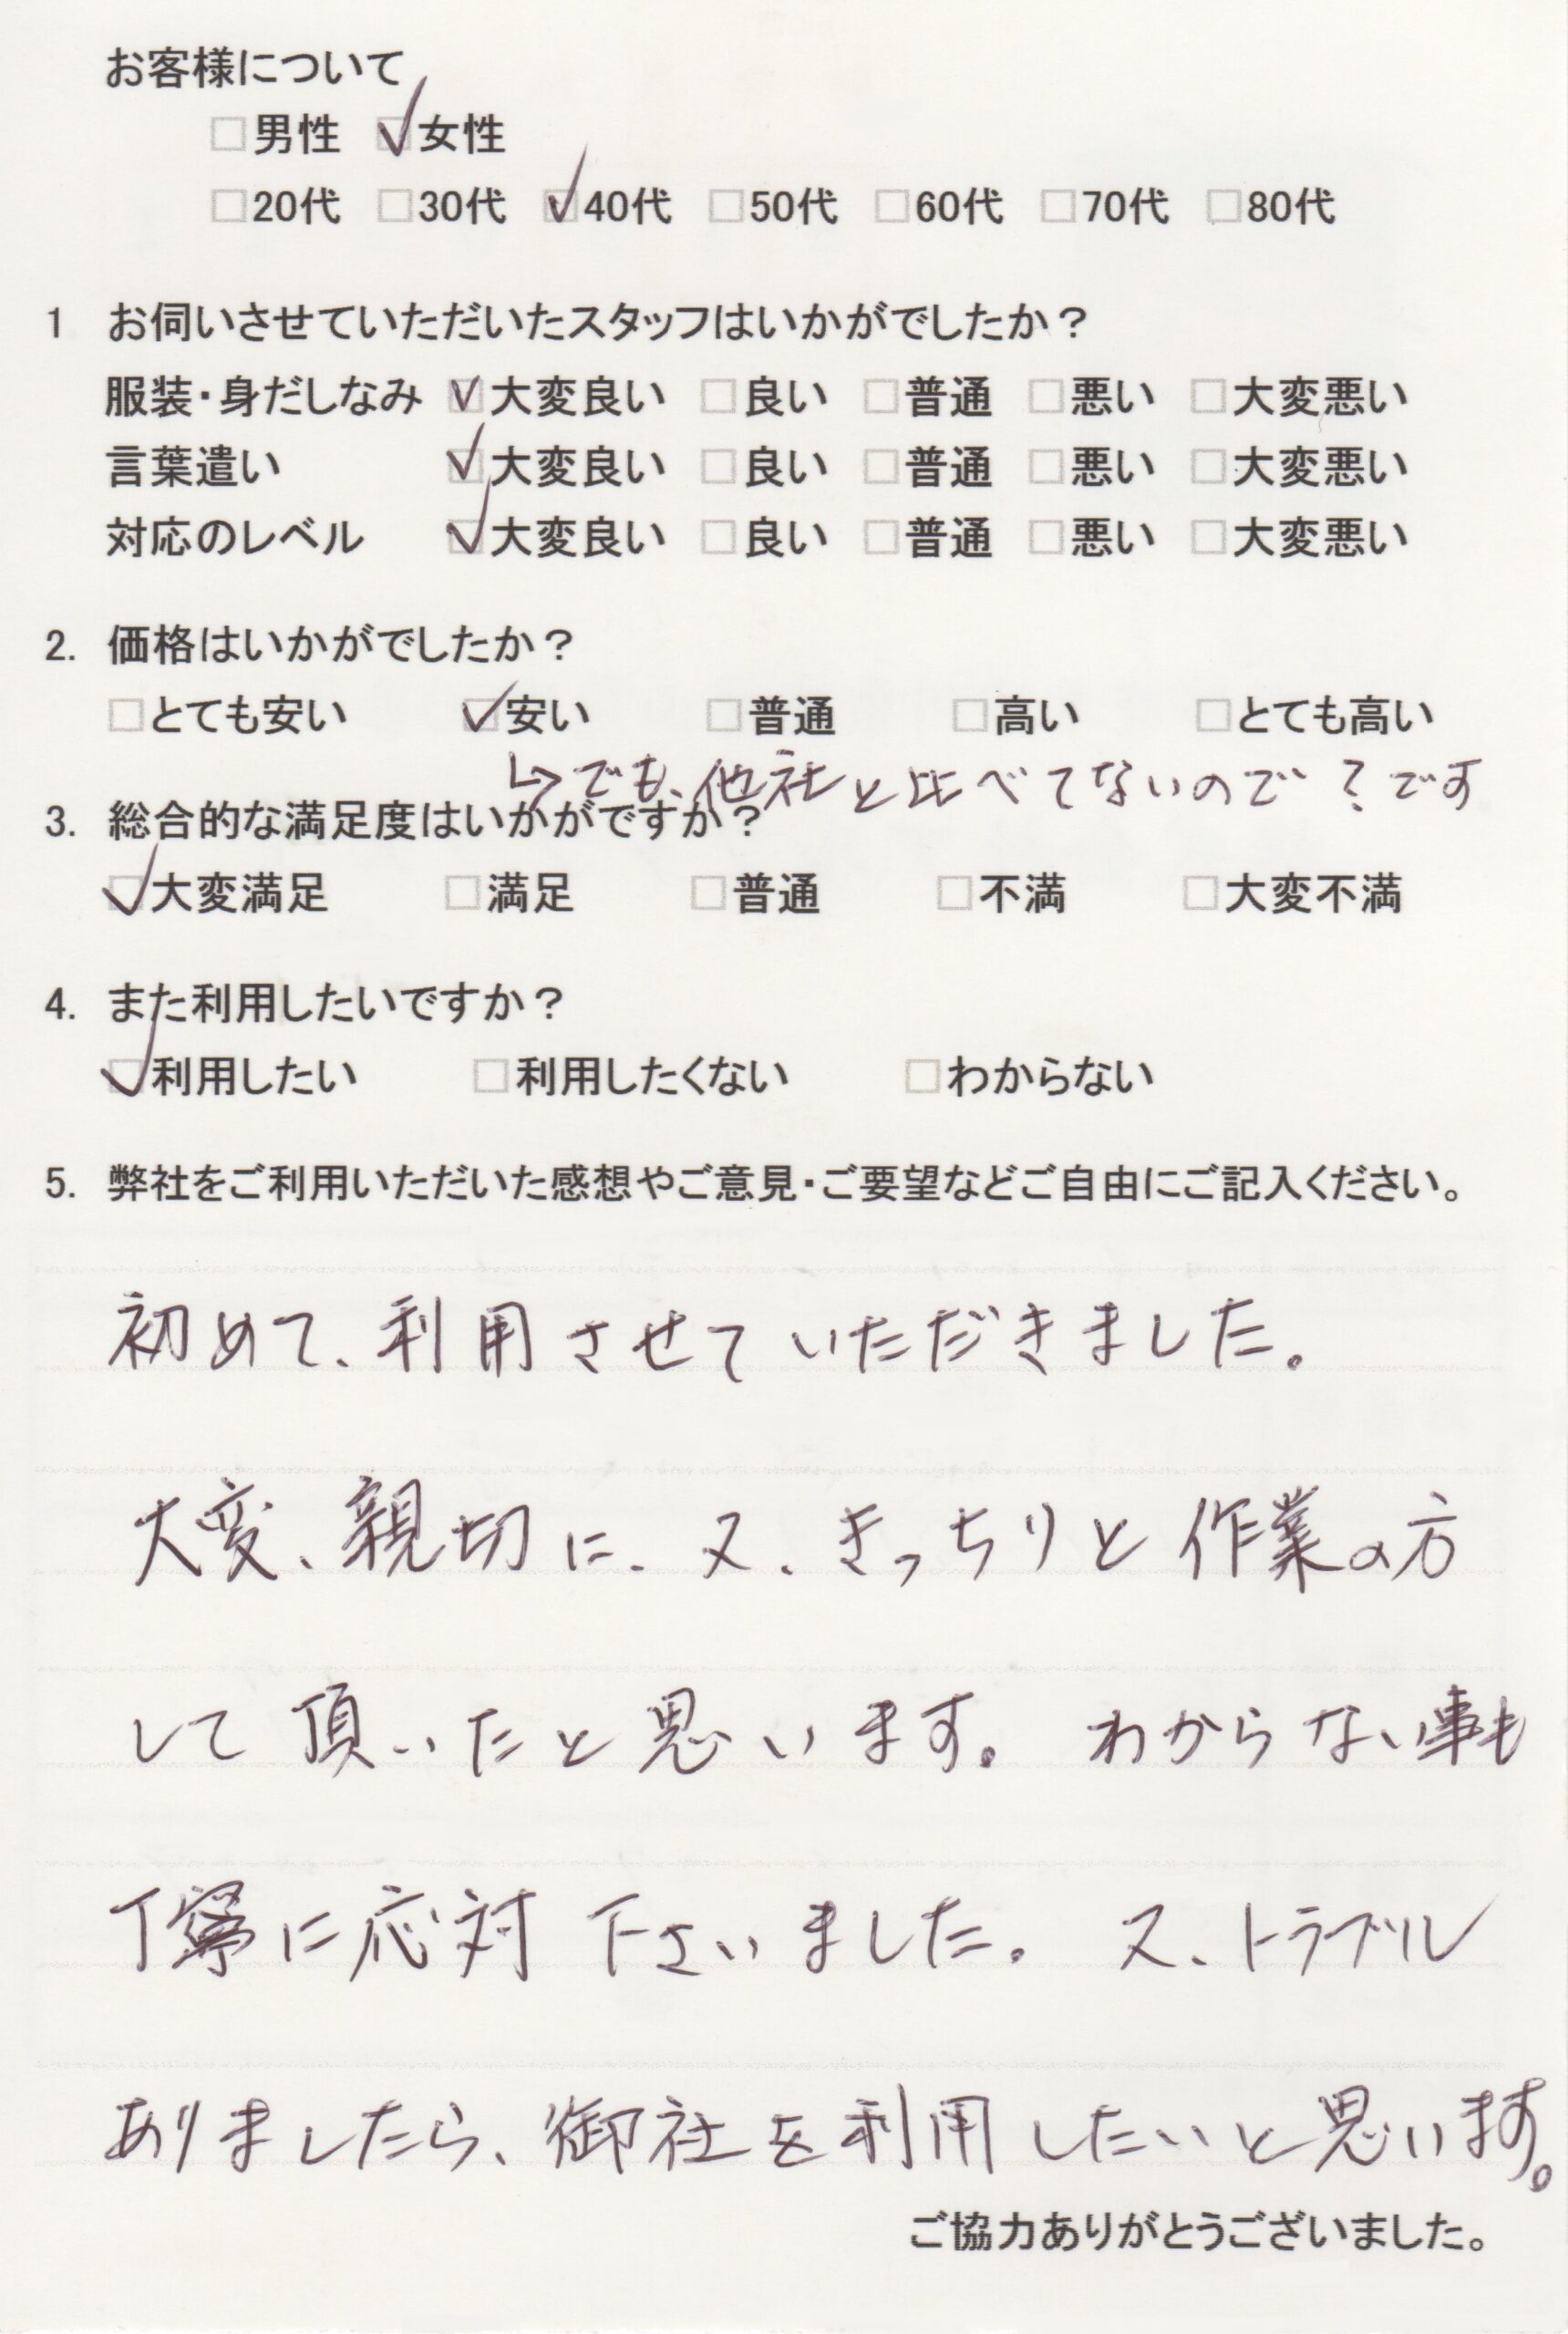 お客様について
□男性 ☑女性
□20代 □30代 ☑40代 □50代 □60代 □70代 □80代
1 お伺いさせていただいたスタッフはいかがでしたか？
服装・身だしなみ ☑大変良い □良い □普通 □悪い □大変悪い
言葉遣い ☑大変良い □良い □普通 □悪い □大変悪い
対応のレベル ☑大変良い □良い □普通 □悪い □大変悪い
2. 価格はいかがでしたか？
□とても安い ☑安い □普通 □高い □とても高い
↳でも、他社と比べてないので？です
3. 総合的な満足度はいかがですか？
☑大変満足 □満足 □普通 □不満 □大変不満
4. また利用したいですか？
☑利用したい □利用したくない □わからない
5. 弊社をご利用いただいた感想やご意見・ご要望などご自由にご記入ください。
初めて、利用させていただきました。
大変、親切に、又、きっちりと作業の方
して頂いたと思います。 わからない事も
丁寧に応対下さいました。 又、トラブル
ありましたら、御社を利用したいと思います。
ご協力ありがとうございました。